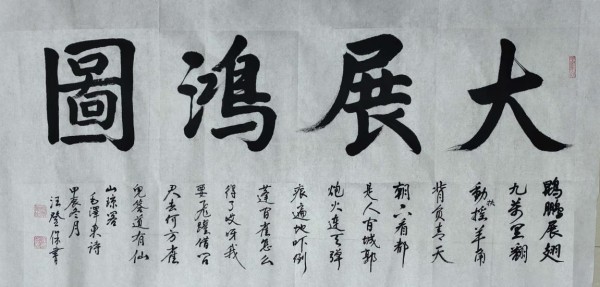 大展鴻圖
鵾鵬展翅
九萬里翻
動扶搖羊角
背負青天
朝下看都
是人间城郭
炮火連天彈
痕遍地吓倒
蓬间雀怎么
得了哎呀我
要飛躍借问
君去何方雀
兒答道有仙
山瓊閣
毛澤東詩
甲辰冬月
汪登保書